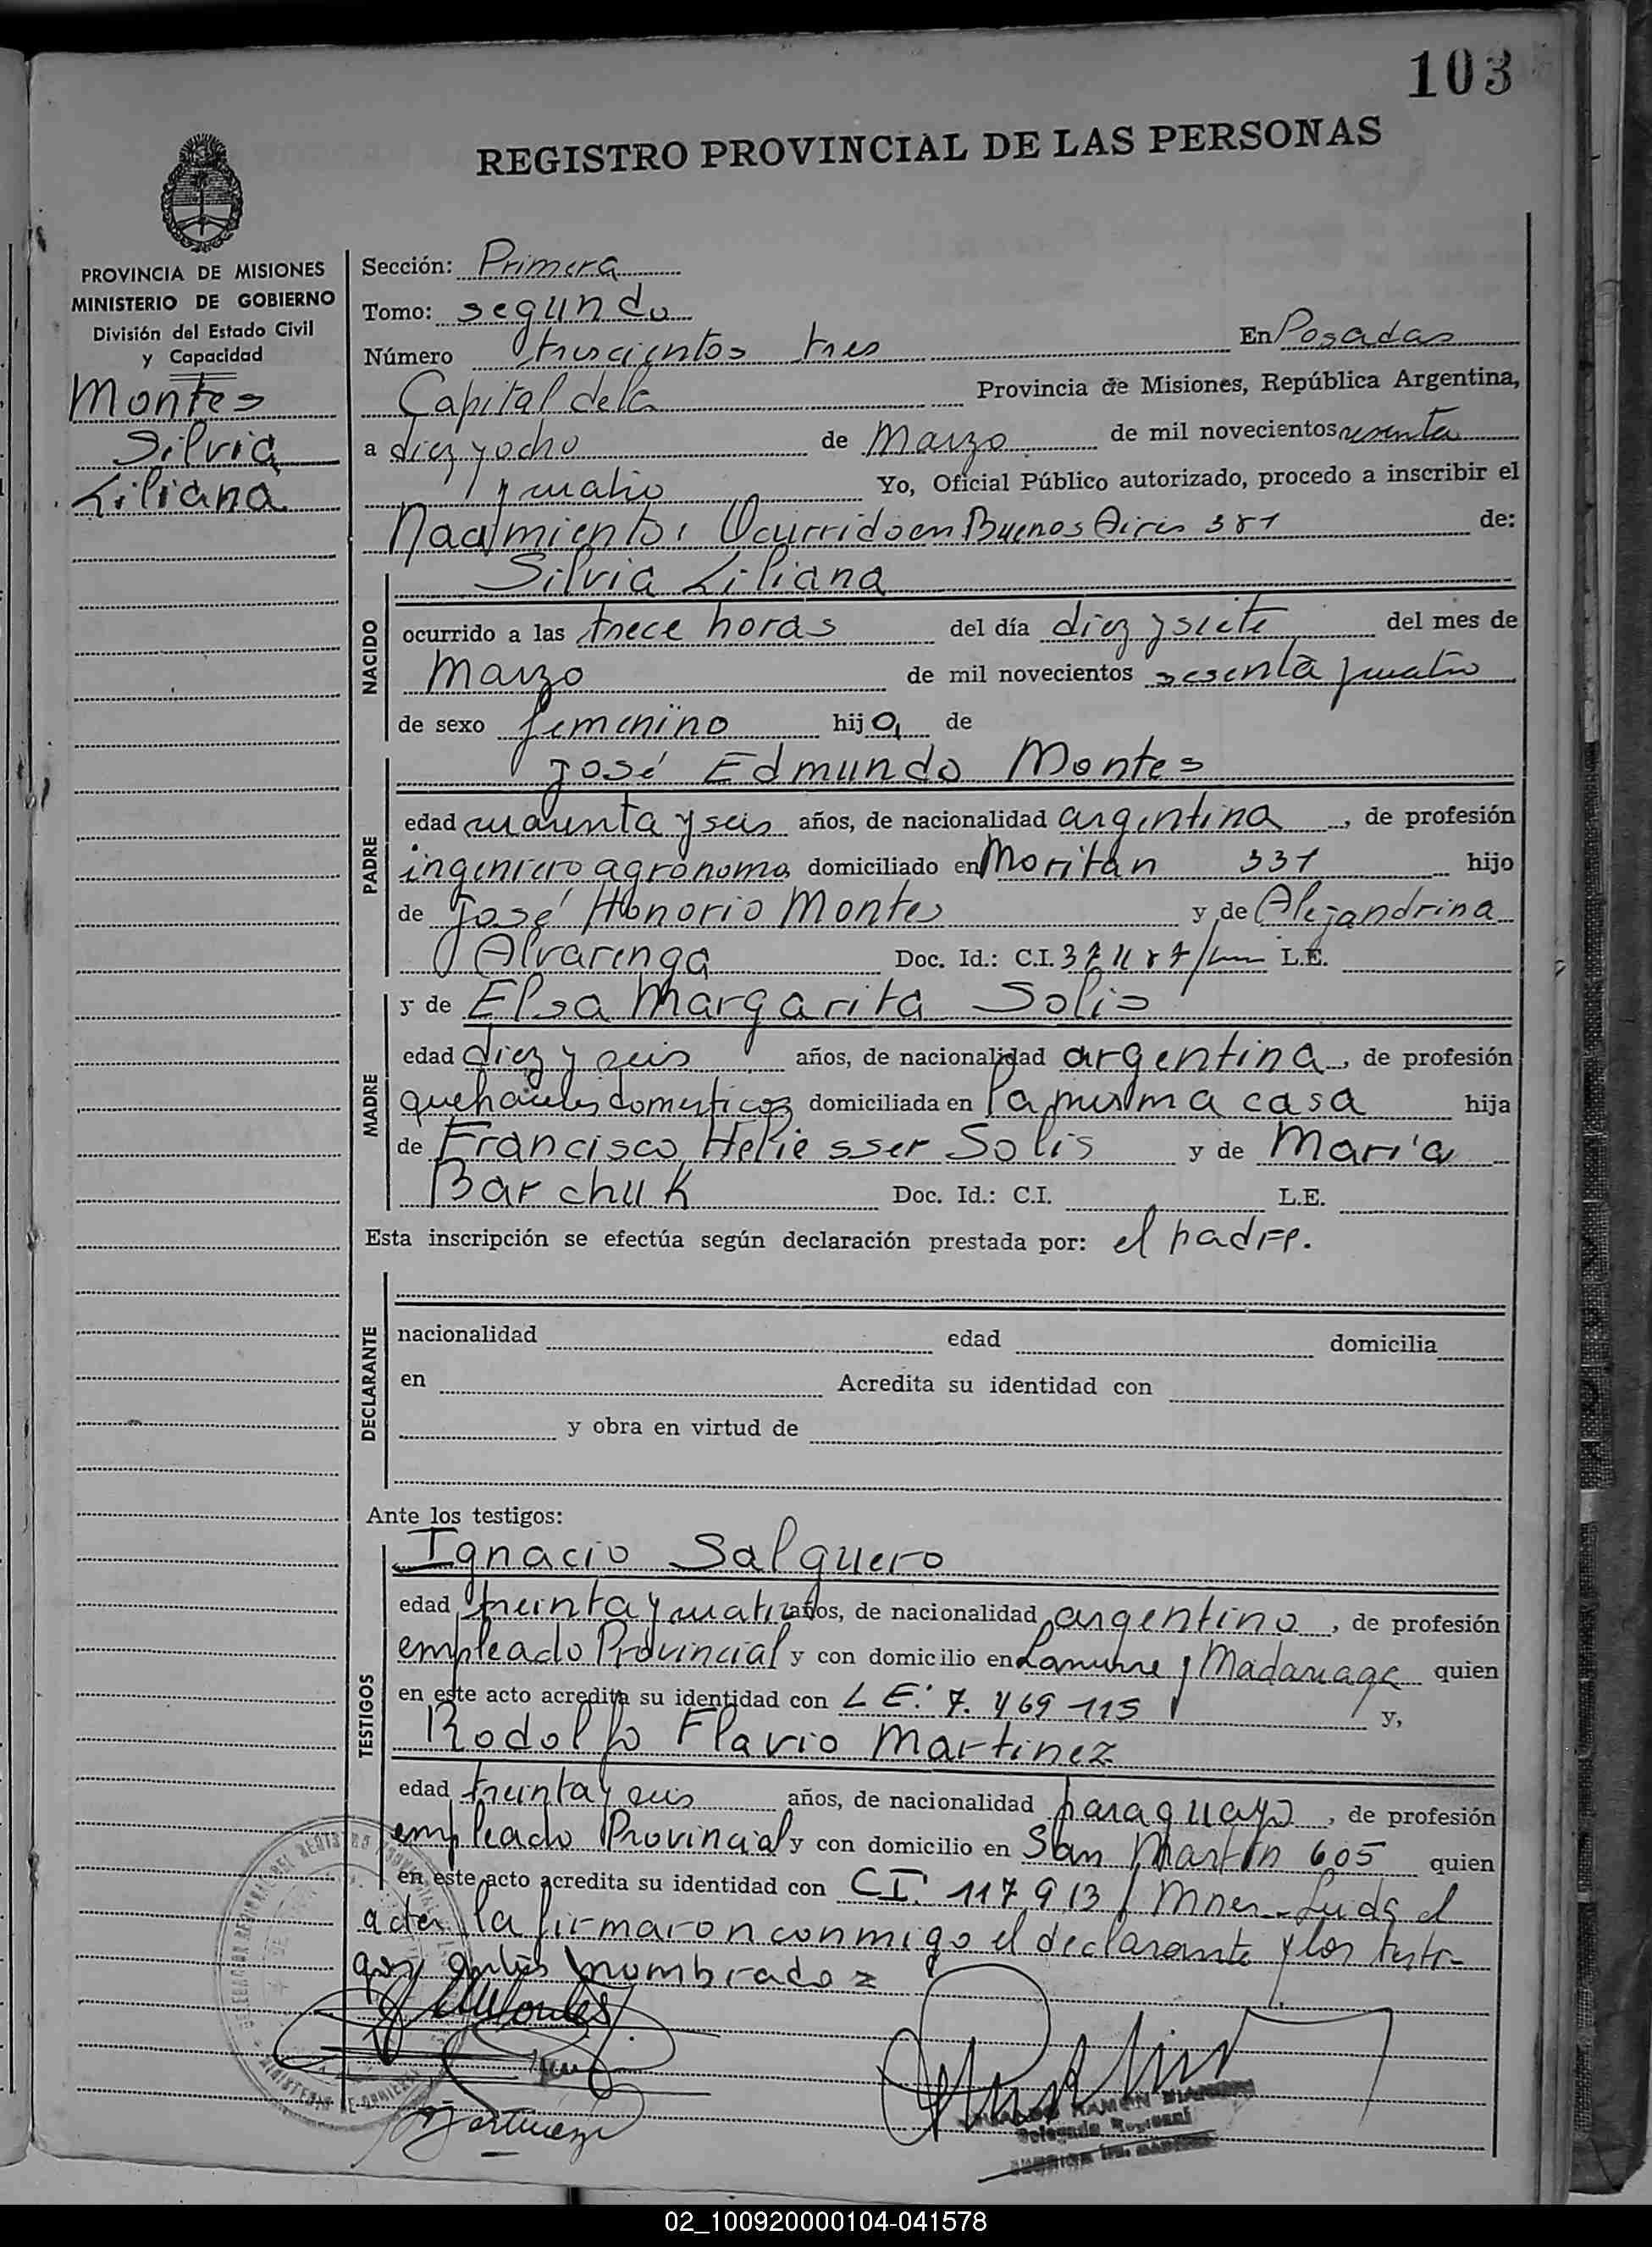 103
REGISTRO PROVINCIAL DE LAS PERSONAS
PROVINCIA DE MISIONES
MINISTERIO DE GOBIERNO
División del Estado Civil
y Capacidad
Montes
Silvia
Liliana
Sección: Primera
Tomo: segundo
Número trescientos tres En Posadas
Capital de la Provincia de Misiones, República Argentina,
a diez y ocho de Marzo de mil novecientos sesenta
y cuatro Yo, Oficial Público autorizado, procedo a inscribir el
Nacimiento: Ocurrido en Buenos Aires 381 de:
Silvia Liliana
NACIDO
ocurrido a las trece horas del día diez y siete del mes de
Marzo de mil novecientos sesenta y cuatro
de sexo femenino hija de
José Edmundo Montes
PADRE
edad cuarenta y seis años, de nacionalidad argentina, de profesión
ingeniero agrónomo domiciliado en Moritán 331 hijo
de José Honorio Montes y de Alejandrina
Alvarenga Doc. Id.: C.I. L.E.
y de Elsa Margarita Solis
MADRE
edad diez y seis años, de nacionalidad argentina, de profesión
quehaceres domesticos domiciliada en la misma casa hija
de Francisco Heliesser Solis y de María
Barchuk Doc. Id.: C.I. L.E.
Esta inscripción se efectúa según declaración prestada por: el padre.
DECLARANTE
nacionalidad edad domicilia
en Acredita su identidad con
y obra en virtud de
Ante los testigos:
Ignacio Salguero
TESTIGOS
edad treinta y cuatro años, de nacionalidad argentino, de profesión
empleado Provincial y con domicilio en y Madariaga quien
en este acto acredita su identidad con L E: 7.469-115 y,
Rodolfo Flavio Martinez
edad treinta y seis años, de nacionalidad paraguayo, de profesión
empleado Provincial y con domicilio en San Martín 605 quien
en este acto acredita su identidad con C I. 117.913/Mnes-Leida el
acta, la firmaron conmigo el declarante y los testi-
gos antes nombrados
RAMON
Delegado Regional
02_100920000104-041578